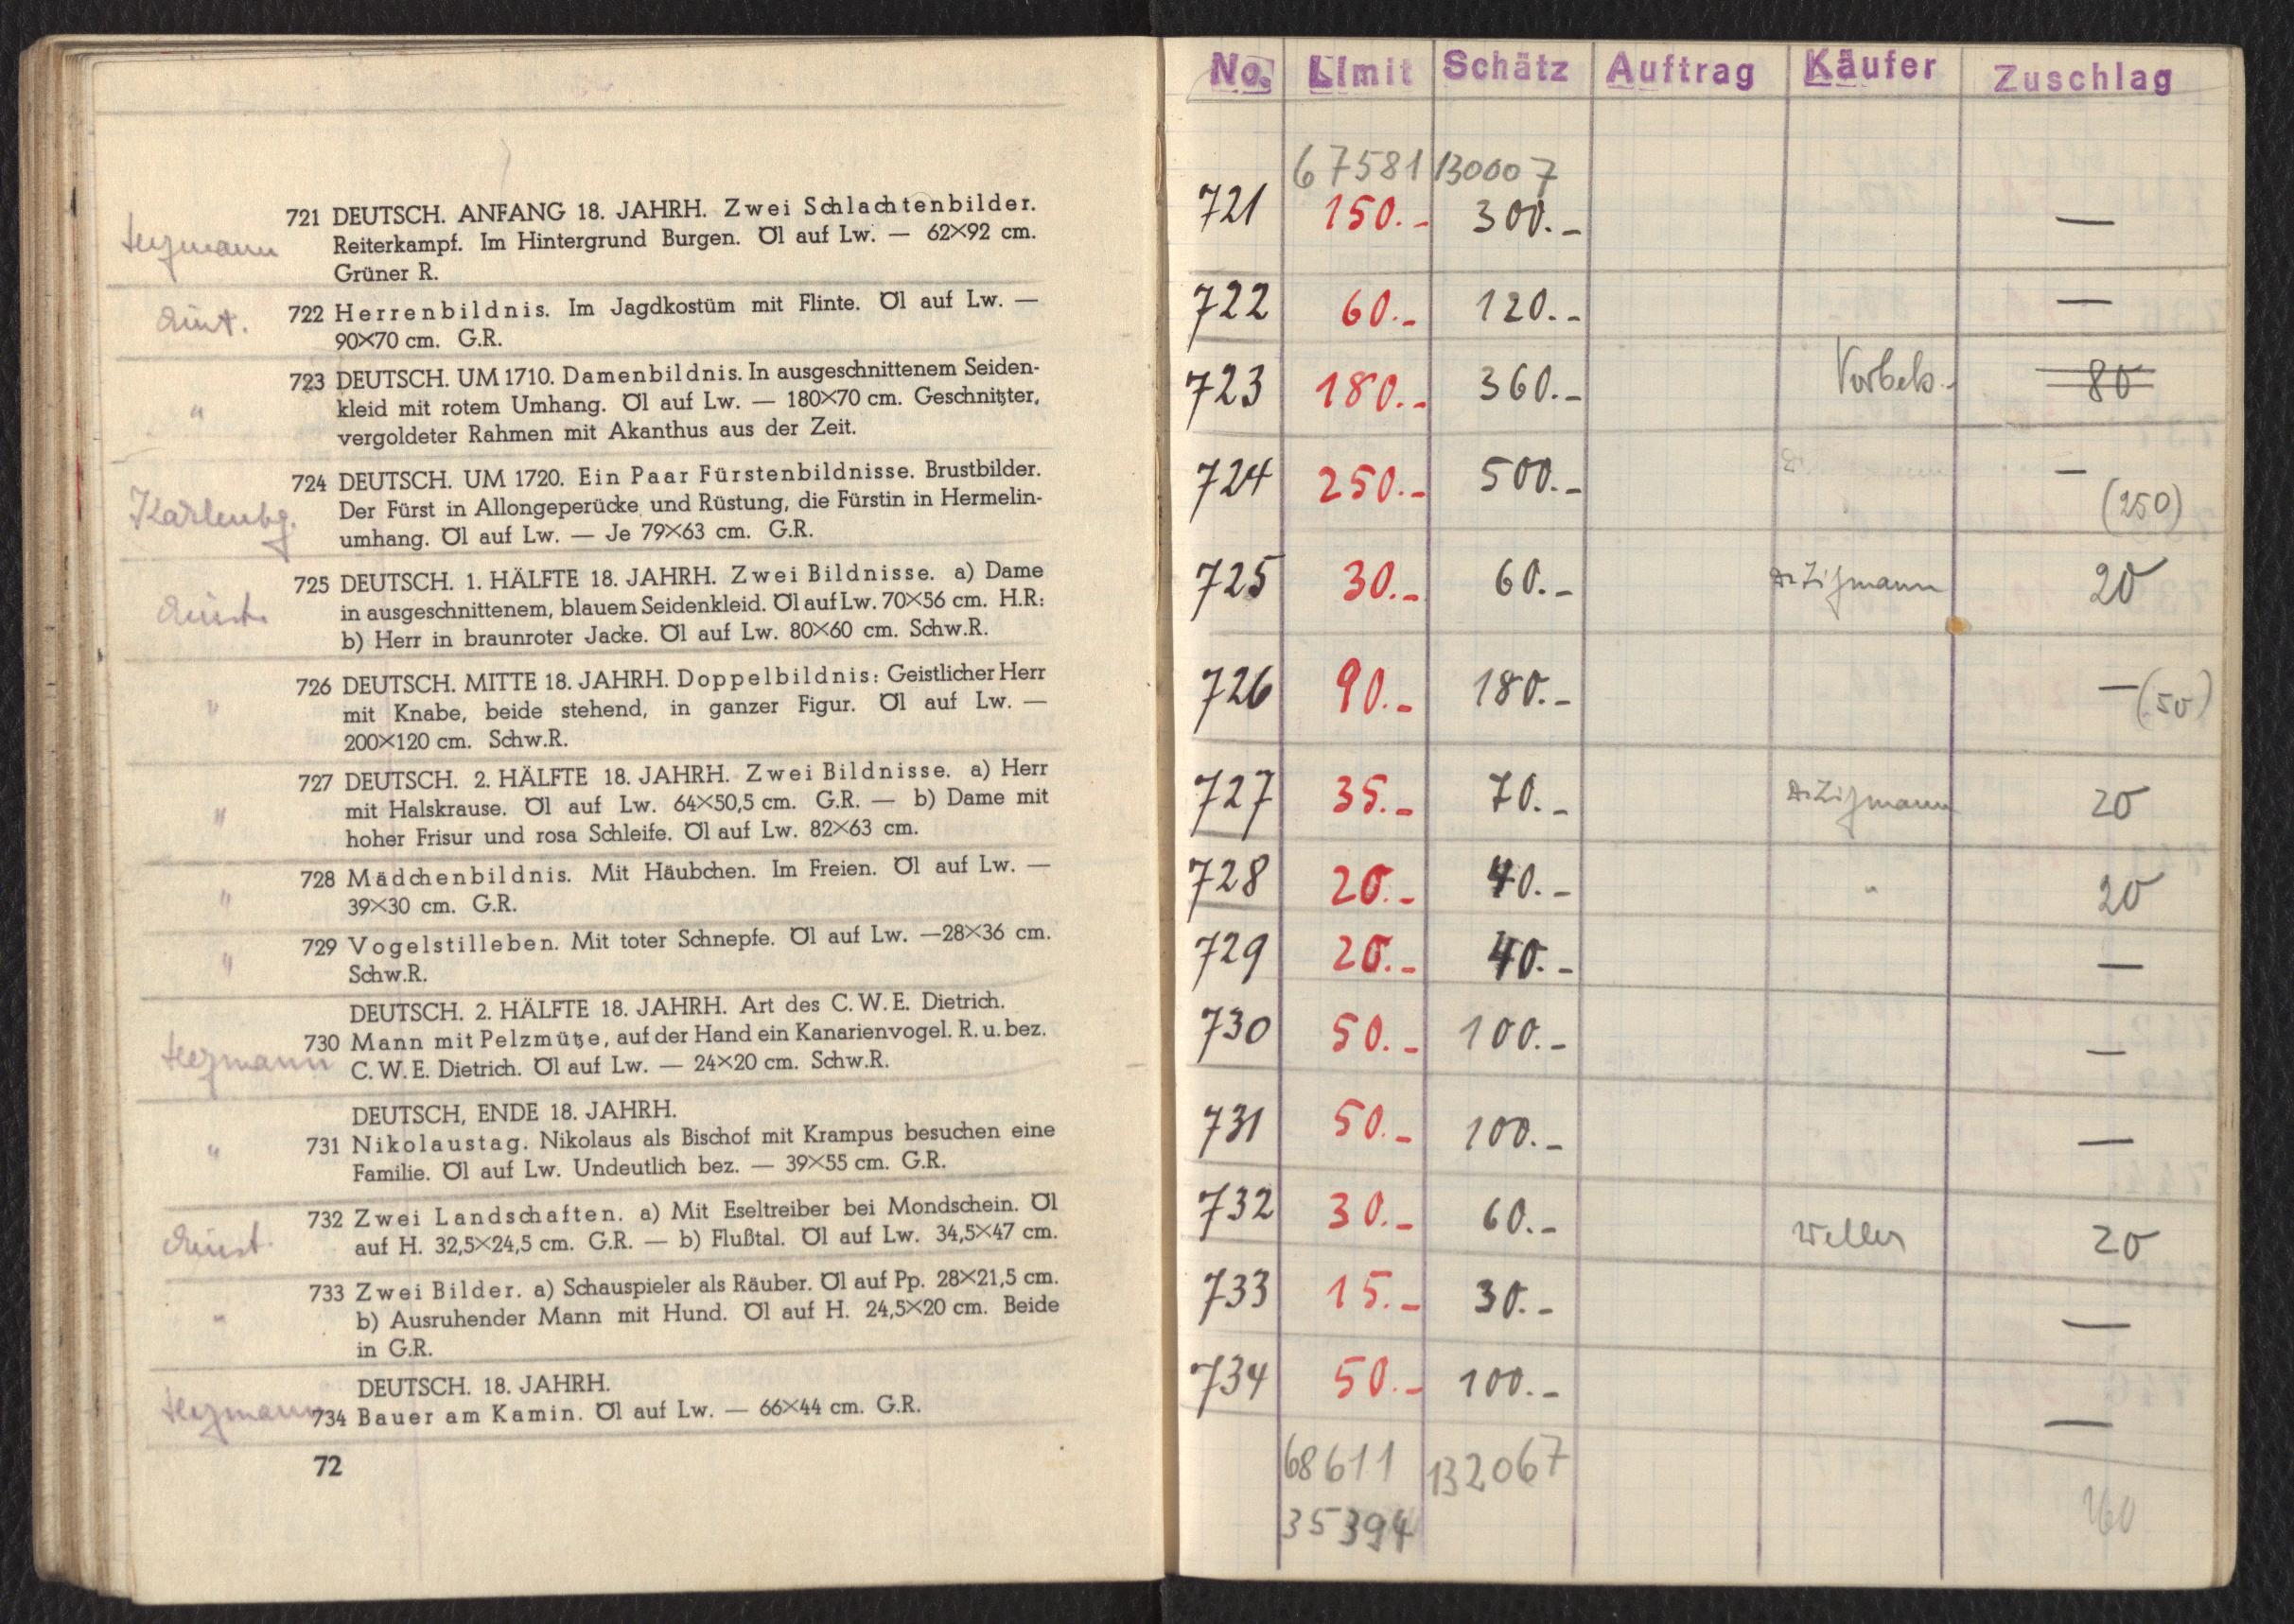 721 DEUTSCH. ANFANG 18. JAHRH. Zwei Schlachtenbilder.
Reiterkampf. Im Hintergrund Burgen. Öl auf Lw. — 62×92 cm.
Grüner R.
722 Herrenbildnis. Im Jagdkostüm mit Flinte. Öl auf Lw. —
90×70 cm. G.R.
723 DEUTSCH. UM 1710. Damenbildnis. In ausgeschnittenem Seiden-
kleid mit rotem Umhang. Öl auf Lw. — 180×70 cm. Geschnitzter,
vergoldeter Rahmen mit Akanthus aus der Zeit.
"
724 DEUTSCH. UM 1720. Ein Paar Fürstenbildnisse. Brustbilder.
Der Fürst in Allongeperücke und Rüstung, die Fürstin in Hermelin-
umhang. Öl auf Lw. — Je 79×63 cm. G.R.
725 DEUTSCH. 1. HÄLFTE 18. JAHRH. Zwei Bildnisse. a) Dame
in ausgeschnittenem, blauem Seidenkleid. Öl auf Lw. 70×56 cm. H.R.:
b) Herr in braunroter Jacke. Öl auf Lw. 80×60 cm. Schw.R.
726 DEUTSCH. MITTE 18. JAHRH. Doppelbildnis: Geistlicher Herr
" mit Knabe, beide stehend, in ganzer Figur. Öl auf Lw. —
200×120 cm. Schw.R.
727 DEUTSCH. 2. HÄLFTE 18. JAHRH. Zwei Bildnisse. a) Herr
" mit Halskrause. Öl auf Lw. 64×50,5 cm. G.R. — b) Dame mit
hoher Frisur und rosa Schleife. Öl auf Lw. 82×63 cm.
728 Mädchenbildnis. Mit Häubchen. Im Freien. Öl auf Lw. —
" 39×30 cm. G.R.
729 Vogelstilleben. Mit toter Schnepfe. Öl auf Lw. —28×36 cm.
" Schw.R.
DEUTSCH. 2. HÄLFTE 18. JAHRH. Art des C. W. E. Dietrich.
730 Mann mit Pelzmütze, auf der Hand ein Kanarienvogel. R. u. bez.
C. W. E. Dietrich. Öl auf Lw. — 24×20 cm. Schw.R.
DEUTSCH, ENDE 18. JAHRH.
" 731 Nikolaustag. Nikolaus als Bischof mit Krampus besuchen eine
Familie. Öl auf Lw. Undeutlich bez. — 39×55 cm. G.R.
732 Zwei Landschaften. a) Mit Eseltreiber bei Mondschein. Öl
auf H. 32,5×24,5 cm. G.R. — b) Flußtal. Öl auf Lw. 34,5×47 cm.
733 Zwei Bilder. a) Schauspieler als Räuber. Öl auf Pp. 28×21,5 cm.
" b) Ausruhender Mann mit Hund. Öl auf H. 24,5×20 cm. Beide
in G.R.
DEUTSCH. 18. JAHRH.
734 Bauer am Kamin. Öl auf Lw. — 66×44 cm. G.R.
72
No. Limit Schätz Auftrag Käufer Zuschlag
67581 130007
721 150.- 300.- —
722 60.- 120.- —
723 180.- 360.- 80
724 250.- 500.- — (250)
725 30.- 60.- 20
726 90.- 180.- — (50)
727 35.- 70.- 20
728 20.- 40.- " 20
729 20.- 40.- —
730 50.- 100.- —
731 50.- 100.- —
732 30.- 60.- Weller 20
733 15.- 30.- —
734 50.- 100.- —
68611 132067
35394 160